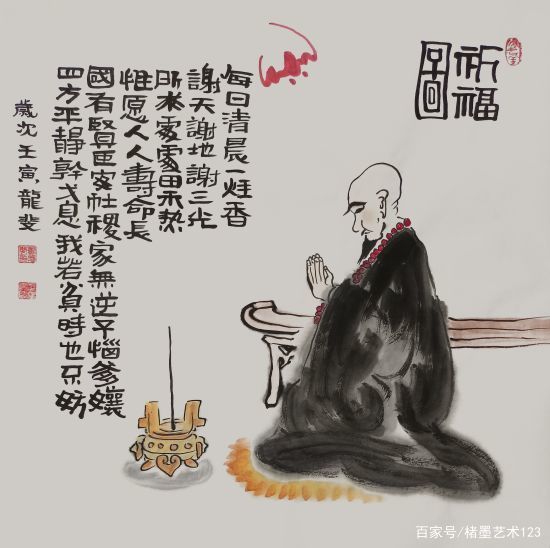 祈福
圖
每日清晨一炷香
謝天謝地謝三光
所求處處田禾熟
惟愿人人壽命長
國有賢臣安社稷家無逆子惱爹孃
四方平靜幹戈息我若貧時也不妨
歲次壬寅龍斐
百家号/楮墨艺术123